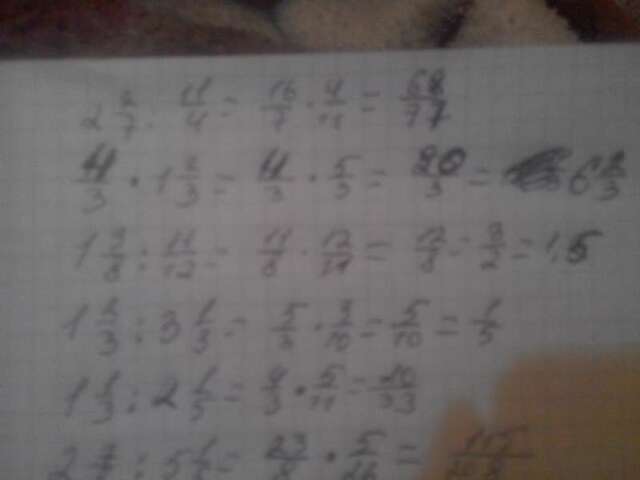 2 2/7 : 11/4 = 16/7 · 4/11 = 68/77
4/3 · 1 2/3 = 4/3 · 5/3 = 20/3 = 6 2/3
1 3/8 : 11/12 = 11/8 · 12/11 = 12/8 = 3/2 = 1,5
1 2/3 : 3 1/3 = 5/3 · 3/10 = 5/10 = 1/5
1 1/3 : 2 1/5 = 4/3 · 5/11 = 20/33
: 5 1/5 = 23/8 · 5/26 = 115